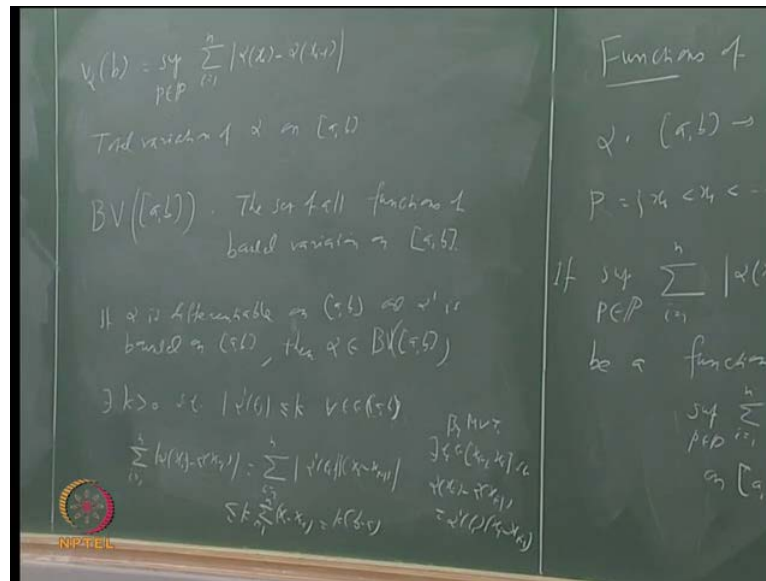 V_α(b) = sup_{P∈ℙ} ∑_{i=1}^{n} |α(x_i) - α(x_{i-1})|
Total variation of α on [a,b]
BV([a,b]) . The set of all functions of
bounded variation on [a,b].
If α is differentiable on [a,b] and α' is
bounded on [a,b], then α ∈ BV([a,b])
∃ k>0 s.t. |α'(t)| ≤ k ∀ t ∈ [a,b]
∑_{i=1}^{n} |α(x_i) - α(x_{i-1})| = ∑_{i=1}^{n} |α'(t_i)| |(x_i - x_{i-1})|
≤ k ∑_{i=1}^{n} (x_i - x_{i-1}) = k(b-a)
By MVT,
∃ t_i ∈ [x_{i-1}, x_i] s.t.
α(x_i) - α(x_{i-1})
= α'(t_i)(x_i - x_{i-1})
Functions of
α : [a,b] →
P = {x_0 < x_1 < -
If sup_{P∈ℙ} ∑_{i=1}^{n} |α(x
be a function
sup_{P∈ℙ} ∑_{i=1}^{n}
on [a,
NPTEL